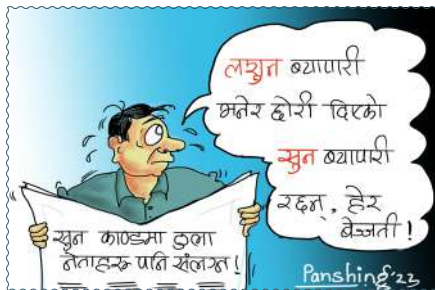 लसुन ब्यापारी
भनेर छोरी दिएको
सुन ब्यापारी
रछन्, हेर
बेज्जती !
सुन काण्डमा ठूला
नेताहरू पनि संलग्न !
Panshing'23